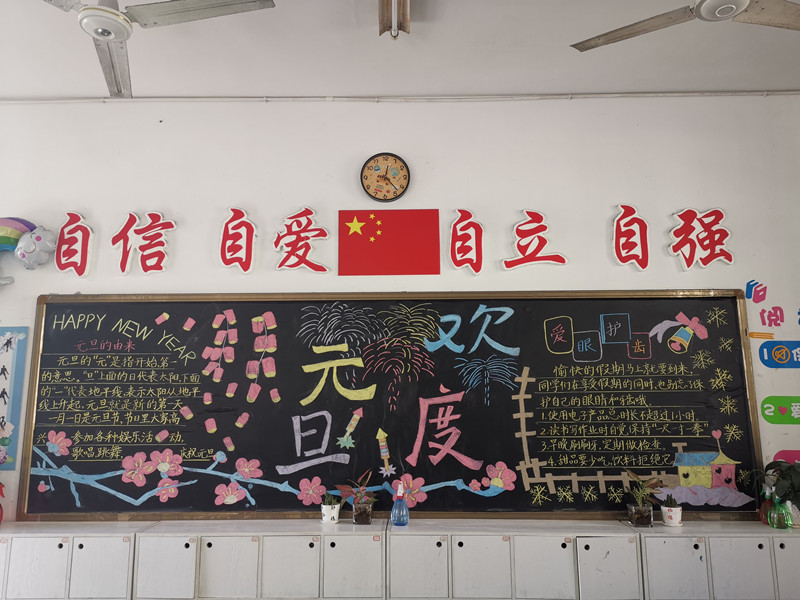 自信 自爱 自立 自强
HAPPY NEW YEAR
元旦的由来
元旦的"元"是指开始第一
的意思,"旦"上面的日代表太阳,下面
的"一"代表地平线,表示太阳从地平
线上升起,元旦就是新的第一天
一月一日是元旦节,节日里大家高
兴 参加各种娱乐活动,
歌唱跳舞 庆祝元旦
欢
元
旦 度
爱眼护齿
愉快的假期马上就要到来,
同学们在享受假期的同时,也别忘了保
护自己的眼睛和牙齿哦
1.使用电子产品总时长不超过1小时,
2.读书写作业时自觉保持"一尺一寸一拳"
3.早晚刷刷牙,定期做检查
4.甜品要少吃,饮料拒绝它
阅
1
2